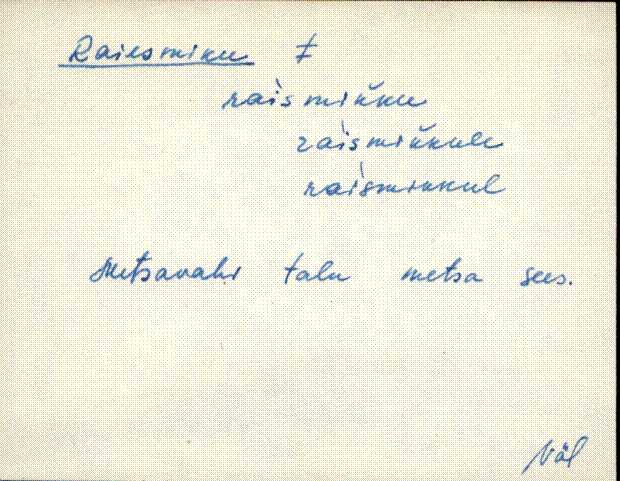 Raiesmiku Ŧ
raìsmik̆ku
raìsmik̆kule
raìsmikkul
Metsavahi talu metsa sees.
Näl